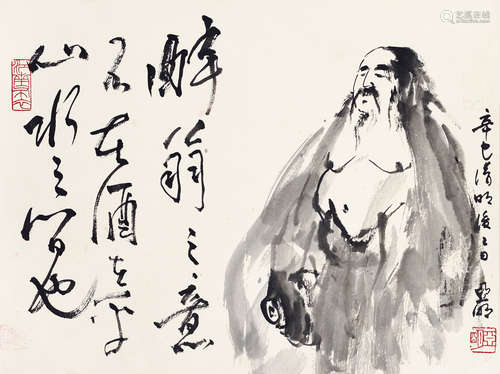 辛巳清明後二日 亚明
醉翁之意
不在酒在乎
山水之间也